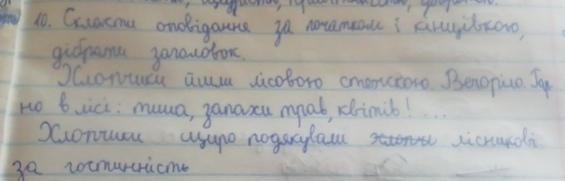 10. Скласти оповідання за початком і кінцівкою,
дібрати заголовок.
Хлопчики йшли лісовою стежкою. Вечоріло. Гар
но в лісі: тиша, запахи трав, квітів! ...
Хлопчики щиро подякували хлопчи лісникові
за гостинність